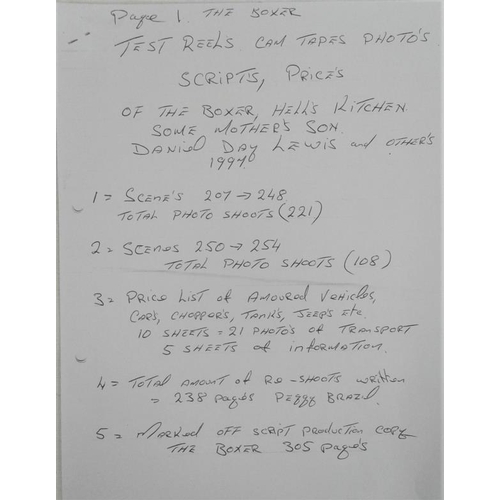 Page 1. THE BOXER
TEST REELS. CAM TAPES PHOTO'S
SCRIPTS, PRICE'S
OF THE BOXER, HELL'S KITCHEN
SOME MOTHER'S SON.
DANIEL DAY LEWIS and OTHER'S
1997.
1 = SCENE'S 207 → 248
TOTAL PHOTO SHOOTS (221)
2 = SCENES 250 → 254
TOTAL PHOTO SHOOTS (108)
3 = PRICE LIST of AMOURED VEHICLES,
CAR'S, CHOPPER'S, TANK'S, JEEP'S ETC.
10 SHEETS = 21 PHOTO'S of TRANSPORT
5 SHEETS of INFORMATION.
4 = TOTAL AMOUNT of RE-SHOOTS written
= 238 pages PEGGY
5 = MARKED OFF SCRIPT PRODUCTION COPY
THE BOXER 305 PAGE'S